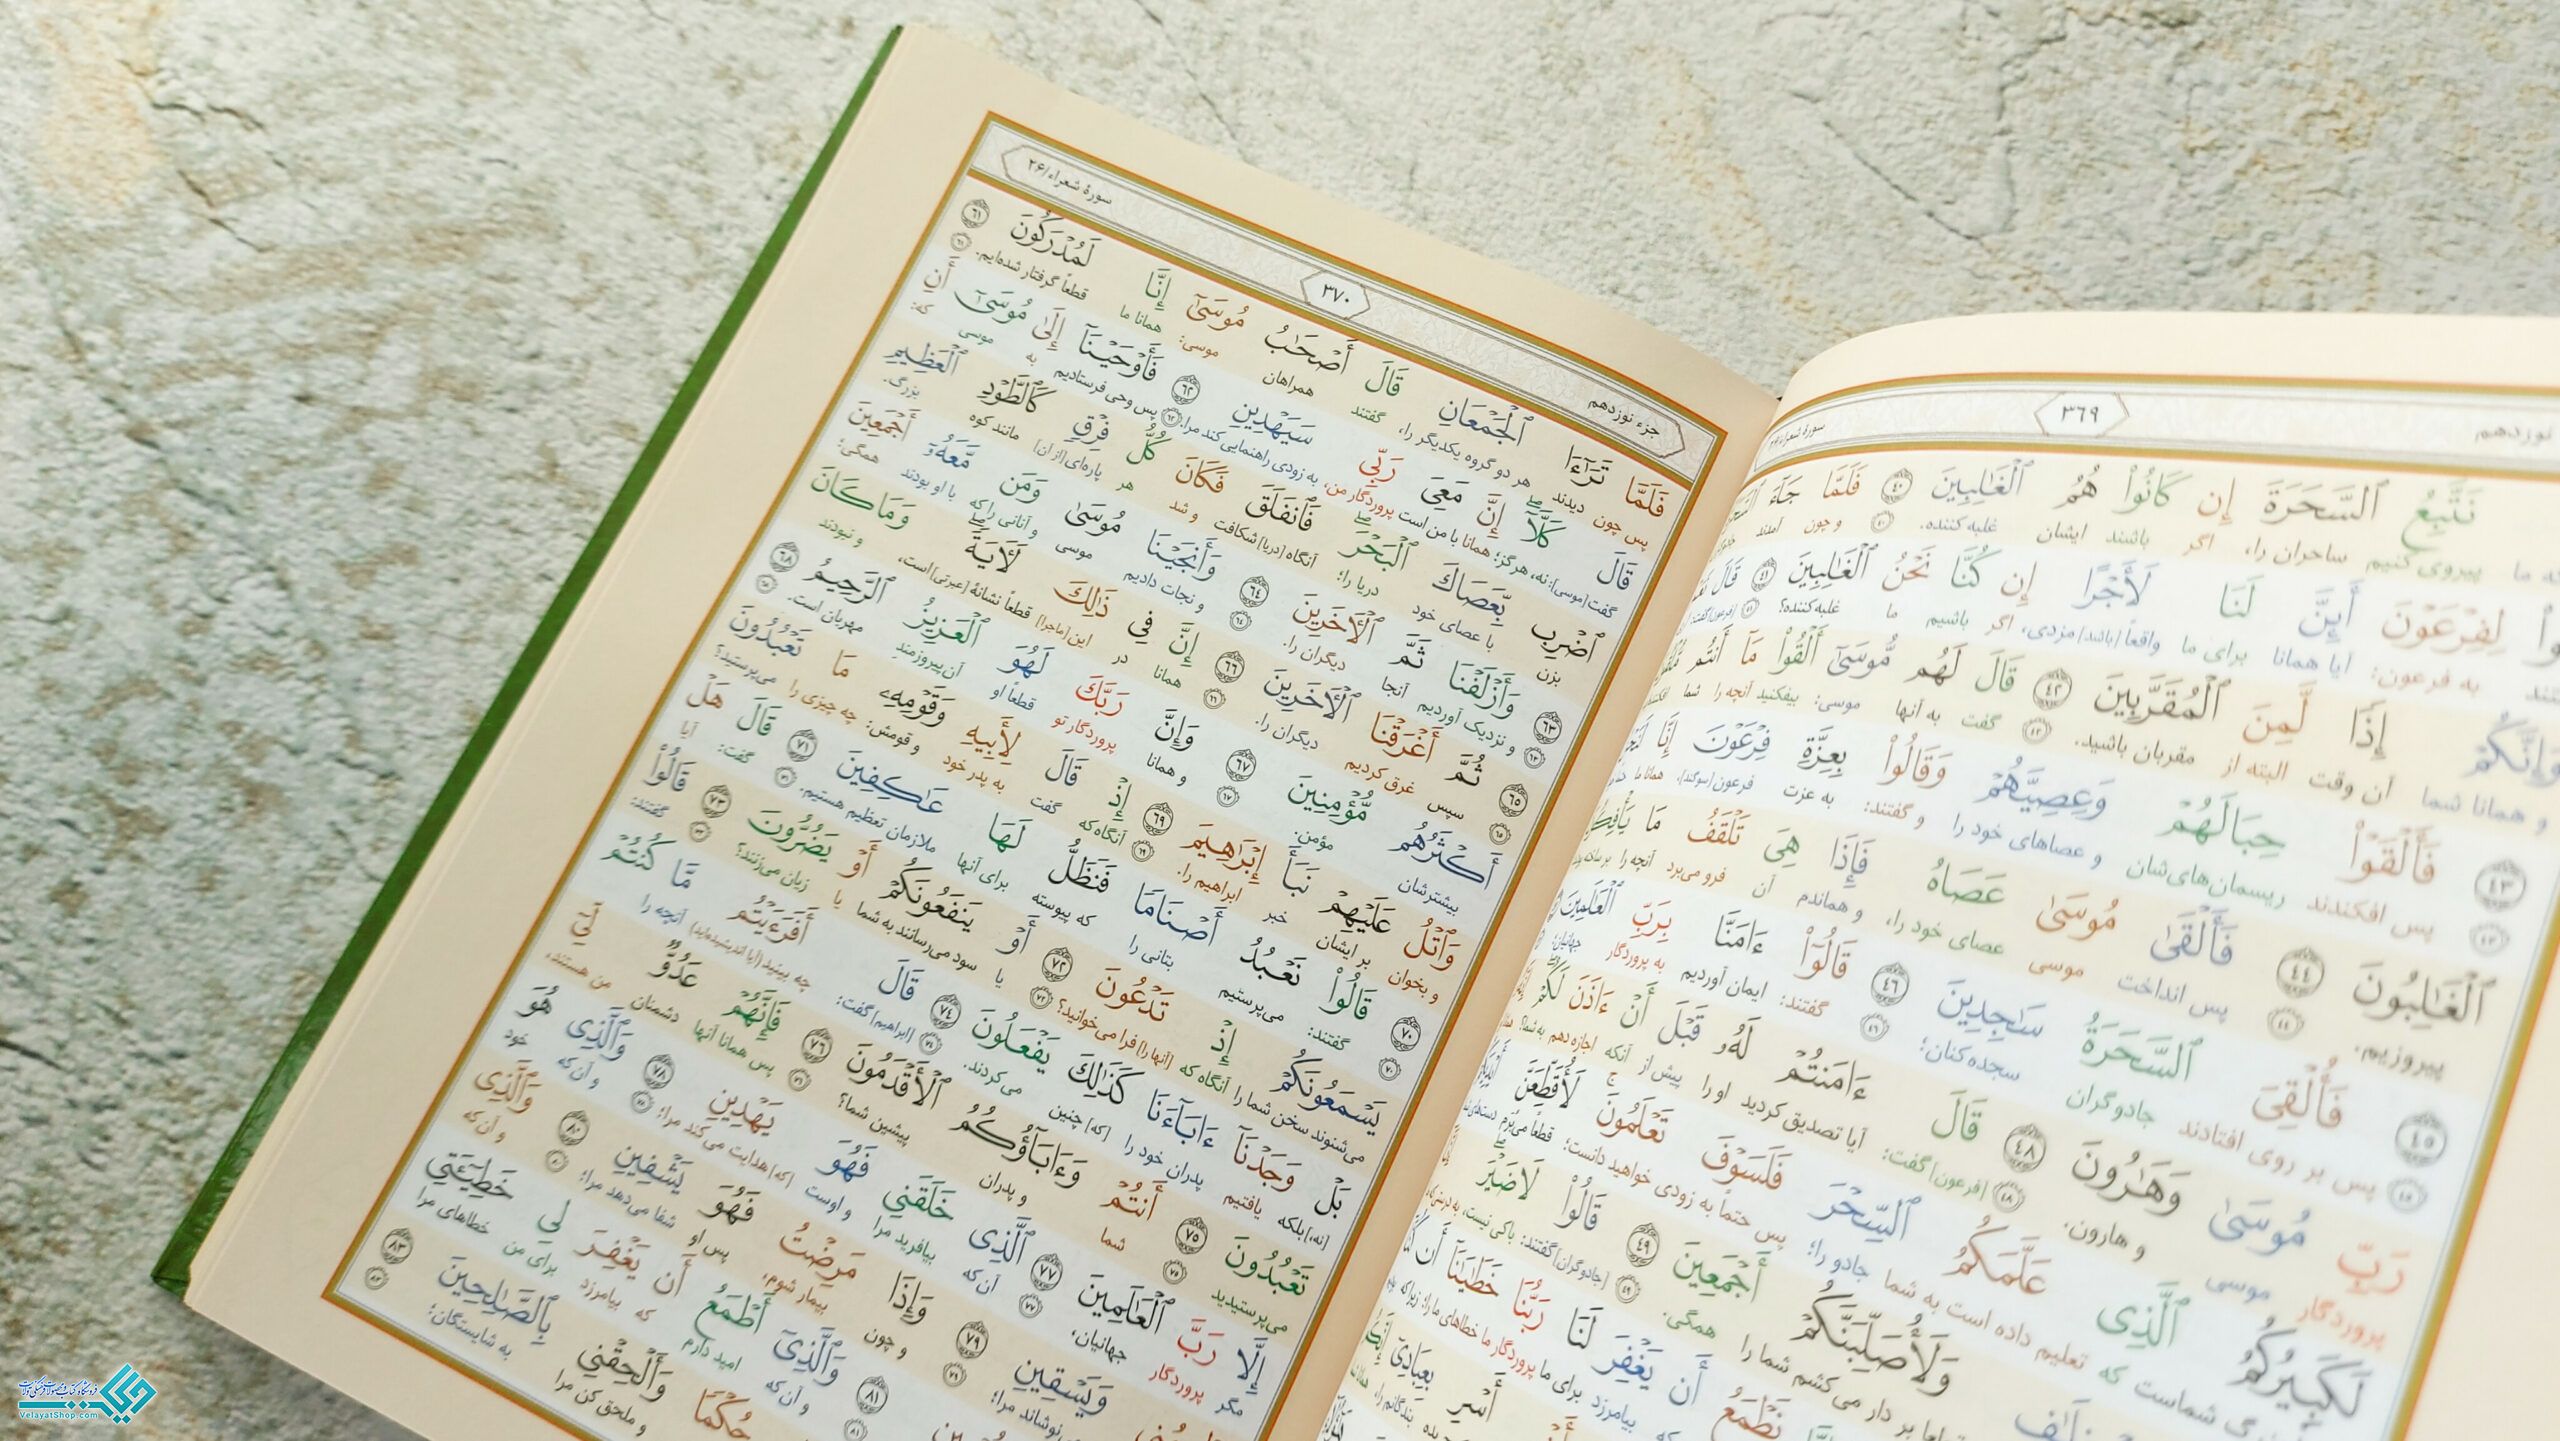 نوزدهم ۳۶۹ سورهٔ شعراء/۲۶
نَتَّبِعُ ٱلسَّحَرَةَ إِن كَانُوا۟ هُمُ ٱلۡغَٰلِبِينَ ۴۰ فَلَمَّا جَآءَ
ما پیروی کنیم ساحران را، اگر باشند ایشان غلبه کننده. ۴۰ و چون آمدند
لِفِرۡعَوۡنَ أَئِنَّ لَنَا لَأَجۡرًا إِن كُنَّا نَحۡنُ ٱلۡغَٰلِبِينَ ۴۱ قَالَ
به فرعون: آیا همانا برای ما واقعاً [باشد] مزدی، اگر باشیم ما غلبه کننده؟ ۴۱ [فرعون] گفت:
وَإِنَّكُمۡ إِذًا لَّمِنَ ٱلۡمُقَرَّبِينَ ۴۲ قَالَ لَهُم مُّوسَىٰٓ أَلۡقُوا۟ مَآ أَنتُم
و همانا شما آن وقت البته از مقربان باشید. ۴۲ گفت به آنها موسی: بیفکنید آنچه را شما
فَأَلۡقَوۡا۟ حِبَالَهُمۡ وَعِصِيَّهُمۡ وَقَالُوا۟ بِعِزَّةِ فِرۡعَوۡنَ إِنَّا
۴۳ پس افکندند ریسمان‌های‌شان و عصاهای خود را و گفتند: به عزت فرعون [سوگند]، همانا ما
ٱلۡغَٰلِبُونَ ۴۴ فَأَلۡقَىٰ مُوسَىٰ عَصَاهُ فَإِذَا هِيَ تَلۡقَفُ مَا
پیروزیم. ۴۴ پس انداخت موسی عصای خود را، و هماندم آن فرو می‌برد آنچه را
۴۵ فَأُلۡقِيَ ٱلسَّحَرَةُ سَٰجِدِينَ ۴۶ قَالُوٓا۟ ءَامَنَّا بِرَبِّ ٱلۡعَٰلَمِينَ
۴۵ پس بر روی افتادند جادوگران سجده‌کنان؛ ۴۶ گفتند: ایمان آوردیم به پروردگار جهانیان؛
رَبِّ مُوسَىٰ وَهَٰرُونَ ۴۸ قَالَ ءَامَنتُمۡ لَهُۥ قَبۡلَ أَنۡ ءَاذَنَ لَكُمۡ
پروردگار موسی و هارون. ۴۸ [فرعون] گفت: آیا تصدیق کردید او را پیش از آنکه اجازه دهم به شما؟
لَكَبِيرُكُمُ ٱلَّذِي عَلَّمَكُمُ ٱلسِّحۡرَ فَلَسَوۡفَ تَعۡلَمُونَ لَأُقَطِّعَنَّ
شماست که تعلیم داده است به شما جادو را؛ پس حتماً به زودی خواهید دانست؛ قطعاً می‌بُرَم
وَلَأُصَلِّبَنَّكُمۡ أَجۡمَعِينَ ۴۹ قَالُوا۟ لَا ضَيۡرَ
بر دار می‌کشم شما را همگی. ۴۹ [جادوگران] گفتند: باکی نیست،
نَطۡمَعُ أَن يَغۡفِرَ لَنَا رَبُّنَا خَطَٰيَٰنَآ أَن
بیامرزد برای ما پروردگار ما خطاهای ما را؛ زیرا که
أَسۡرِ بِعِبَادِيٓ
بندگانم را،
جزء نوزدهم ۳۷۰ سورهٔ شعراء/۲۶
فَلَمَّا تَرَٰٓءَا ٱلۡجَمۡعَانِ قَالَ أَصۡحَٰبُ مُوسَىٰٓ إِنَّا لَمُدۡرَكُونَ ۶۱
پس چون دیدند هر دو گروه یکدیگر را، گفتند همراهان موسی: همانا ما قطعاً گرفتار شده‌ایم. ۶۱
قَالَ كَلَّآ إِنَّ مَعِيَ رَبِّي سَيَهۡدِينِ ۶۲ فَأَوۡحَيۡنَآ إِلَىٰ مُوسَىٰٓ أَنِ
گفت [موسی]: نه، هرگز؛ همانا با من است پروردگار من، به زودی راهنمایی کند مرا. ۶۲ پس وحی فرستادیم به موسی که:
ٱضۡرِب بِّعَصَاكَ ٱلۡبَحۡرَ فَٱنفَلَقَ فَكَانَ كُلُّ فِرۡقٖ كَٱلطَّوۡدِ ٱلۡعَظِيمِ
بزن با عصای خود دریا را؛ آنگاه [دریا] شکافت و شد هر پاره‌ای [از آن] مانند کوه بزرگ.
۶۳ وَأَزۡلَفۡنَا ثَمَّ ٱلۡأٓخَرِينَ ۶۴ وَأَنجَيۡنَا مُوسَىٰ وَمَن مَّعَهُۥٓ أَجۡمَعِينَ
۶۳ و نزدیک آوردیم آنجا دیگران را. ۶۴ و نجات دادیم موسی و آنانی را که با او بودند همگی؛
۶۵ ثُمَّ أَغۡرَقۡنَا ٱلۡأٓخَرِينَ ۶۶ إِنَّ فِي ذَٰلِكَ لَأٓيَةٗ وَمَا كَانَ
۶۵ سپس غرق کردیم دیگران را. ۶۶ همانا در این [ماجرا] قطعاً نشانهٔ [عبرتی] است، و نبودند
أَكۡثَرُهُم مُّؤۡمِنِينَ ۶۷ وَإِنَّ رَبَّكَ لَهُوَ ٱلۡعَزِيزُ ٱلرَّحِيمُ ۶۸
بیشترشان مؤمن. ۶۷ و همانا پروردگار تو قطعاً او آن پیروزمندِ مهربان است. ۶۸
وَٱتۡلُ عَلَيۡهِمۡ نَبَأَ إِبۡرَٰهِيمَ ۶۹ إِذۡ قَالَ لِأَبِيهِ وَقَوۡمِهِۦ مَا تَعۡبُدُونَ
و بخوان بر ایشان خبر ابراهیم را. ۶۹ آنگاه که گفت به پدر خود و قومش: چه چیزی را می‌پرستید؟
۷۰ قَالُوا۟ نَعۡبُدُ أَصۡنَامٗا فَنَظَلُّ لَهَا عَٰكِفِينَ ۷۱ قَالَ هَلۡ
۷۰ گفتند: می‌پرستیم بتانی را که پیوسته برای آنها ملازمان تعظیم هستیم. ۷۱ گفت: آیا
يَسۡمَعُونَكُمۡ إِذۡ تَدۡعُونَ ۷۲ أَوۡ يَنفَعُونَكُمۡ أَوۡ يَضُرُّونَ ۷۳ قَالُوا۟
می‌شنوند سخن شما را آنگاه که [آنها را] فرا می‌خوانید؟ ۷۲ یا سود می‌رسانند به شما یا زیان می‌زنند؟ ۷۳ گفتند:
بَلۡ وَجَدۡنَآ ءَابَآءَنَا كَذَٰلِكَ يَفۡعَلُونَ ۷۴ قَالَ أَفَرَءَيۡتُم مَّا كُنتُمۡ
[نه،] بلکه یافتیم پدران خود را [که] چنین می‌کردند. ۷۴ [ابراهیم] گفت: چه بینید (آیا اندیشیده‌اید) آنچه را
تَعۡبُدُونَ ۷۵ أَنتُمۡ وَءَابَآؤُكُمُ ٱلۡأَقۡدَمُونَ ۷۶ فَإِنَّهُمۡ عَدُوّٞ لِّيٓ
می‌پرستیدید ۷۵ شما و پدران پیشین شما؟ ۷۶ پس همانا آنها دشمنان من هستند،
إِلَّا رَبَّ ٱلۡعَٰلَمِينَ ۷۷ ٱلَّذِي خَلَقَنِي فَهُوَ يَهۡدِينِ ۷۸ وَٱلَّذِي هُوَ
مگر پروردگار جهانیان، ۷۷ آن که بیافرید مرا و اوست [که] هدایت می‌کند مرا؛ ۷۸ و آن که خود
وَيَسۡقِينِ ۷۹ وَإِذَا مَرِضۡتُ فَهُوَ يَشۡفِينِ ۸۰ وَٱلَّذِي
می‌نوشاند مرا؛ ۷۹ و چون بیمار شوم، پس او شفا می‌دهد مرا؛ ۸۰ و آن که
۸۱ وَٱلَّذِيٓ أَطۡمَعُ أَن يَغۡفِرَ لِي خَطِيٓـَٔتِي
۸۱ و آن که امید دارم که بیامرزد برای من خطاهای مرا
حُكۡمٗا وَأَلۡحِقۡنِي بِٱلصَّٰلِحِينَ ۸۳
و ملحق کن مرا به شایستگان؛ ۸۳
فروشگاه کتاب و محصولات فرهنگی ولایت
VelayatShop.com